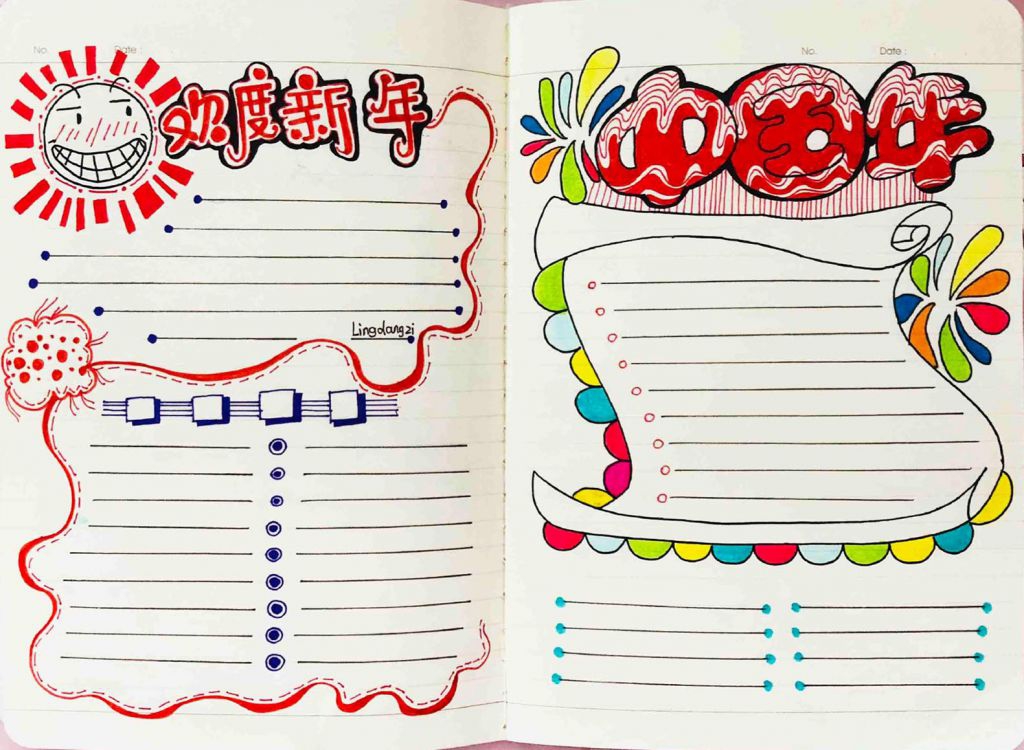 No. Date :
欢度新年
Lingdangzi
No. Date :
中国年